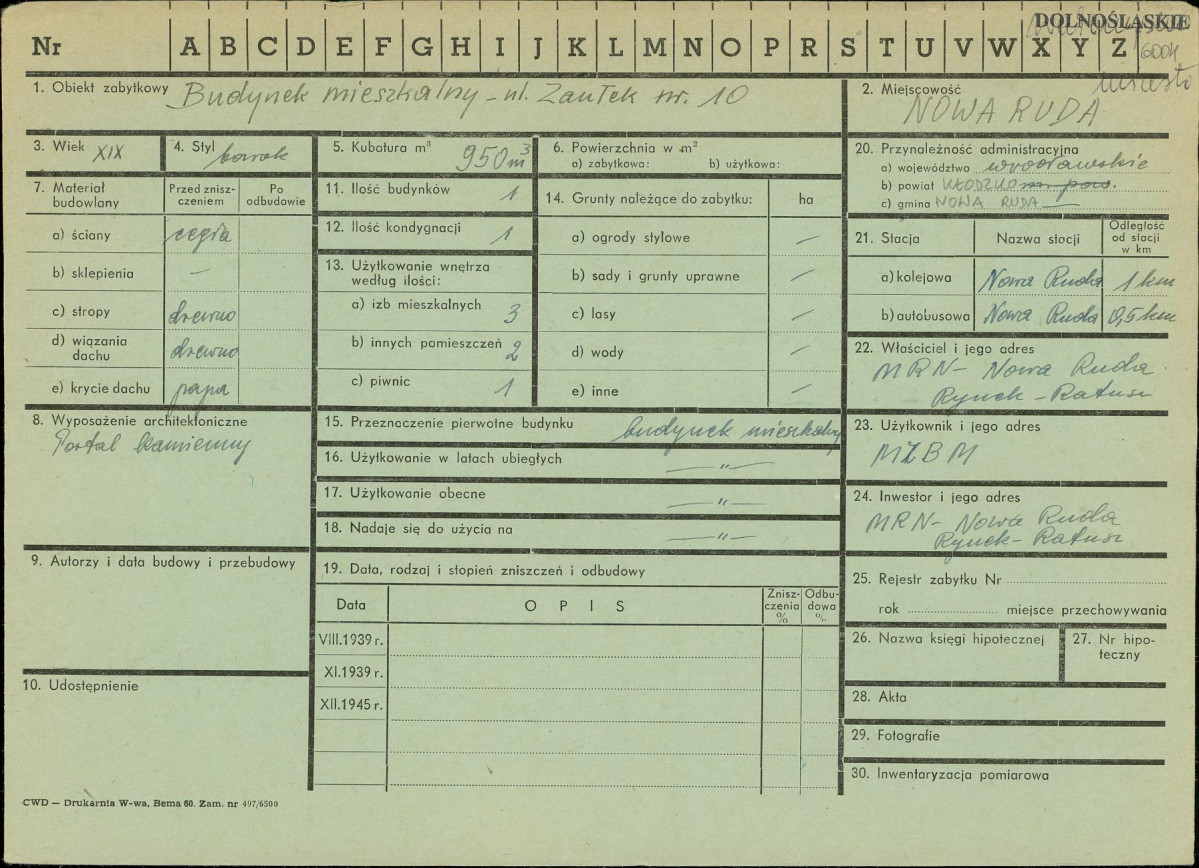 DOLNOŚLĄSKIE
Nr A B C D E F G H I J K L M N O P R S T U V W X Y Z
6004
miasto
1. Obiekt zabytkowy Budynek mieszkalny - ul. Zaułek nr. 10
2. Miejscowość
NOWA RUDA
3. Wiek XIX
4. Styl barok
5. Kubatura m³ 950 m³
6. Powierzchnia w m²
a) zabytkowa: b) użytkowa:
7. Materiał budowlany
Przed zniszczeniem
Po odbudowie
a) ściany cegła
b) sklepienia —
c) stropy drewno
d) wiązania dachu drewno
e) krycie dachu papa
8. Wyposażenie architektoniczne
Portal kamienny
9. Autorzy i data budowy i przebudowy
10. Udostępnienie
11. Ilość budynków 1
12. Ilość kondygnacji 1
13. Użytkowanie wnętrza
według ilości:
a) izb mieszkalnych 3
b) innych pomieszczeń 2
c) piwnic 1
14. Grunty należące do zabytku: ha
a) ogrody stylowe —
b) sady i grunty uprawne —
c) lasy —
d) wody —
e) inne —
15. Przeznaczenie pierwotne budynku budynek mieszkalny
16. Użytkowanie w latach ubiegłych — " —
17. Użytkowanie obecne — " —
18. Nadaje się do użycia na — " —
19. Data, rodzaj i stopień zniszczeń i odbudowy
Data
OPIS
Zniszczenia %
Odbudowa %
VIII.1939 r.
XI.1939 r.
XII.1945 r.
20. Przynależność administracyjna
a) województwo wrocławskie
b) powiat KŁODZKO m. pow.
c) gmina NOWA RUDA —
21. Stacja
Nazwa stacji
Odległość od stacji w km
a) kolejowa Nowa Ruda 1 km
b) autobusowa Nowa Ruda 0,5 km
22. Właściciel i jego adres
MRN - Nowa Ruda
Rynek - Ratusz
23. Użytkownik i jego adres
MZBM
24. Inwestor i jego adres
MRN - Nowa Ruda
Rynek - Ratusz
25. Rejestr zabytku Nr
rok miejsce przechowywania
26. Nazwa księgi hipotecznej
27. Nr hipoteczny
28. Akta
29. Fotografie
30. Inwentaryzacja pomiarowa
CWD — Drukarnia W-wa, Bema 60. Zam. nr 497/6500